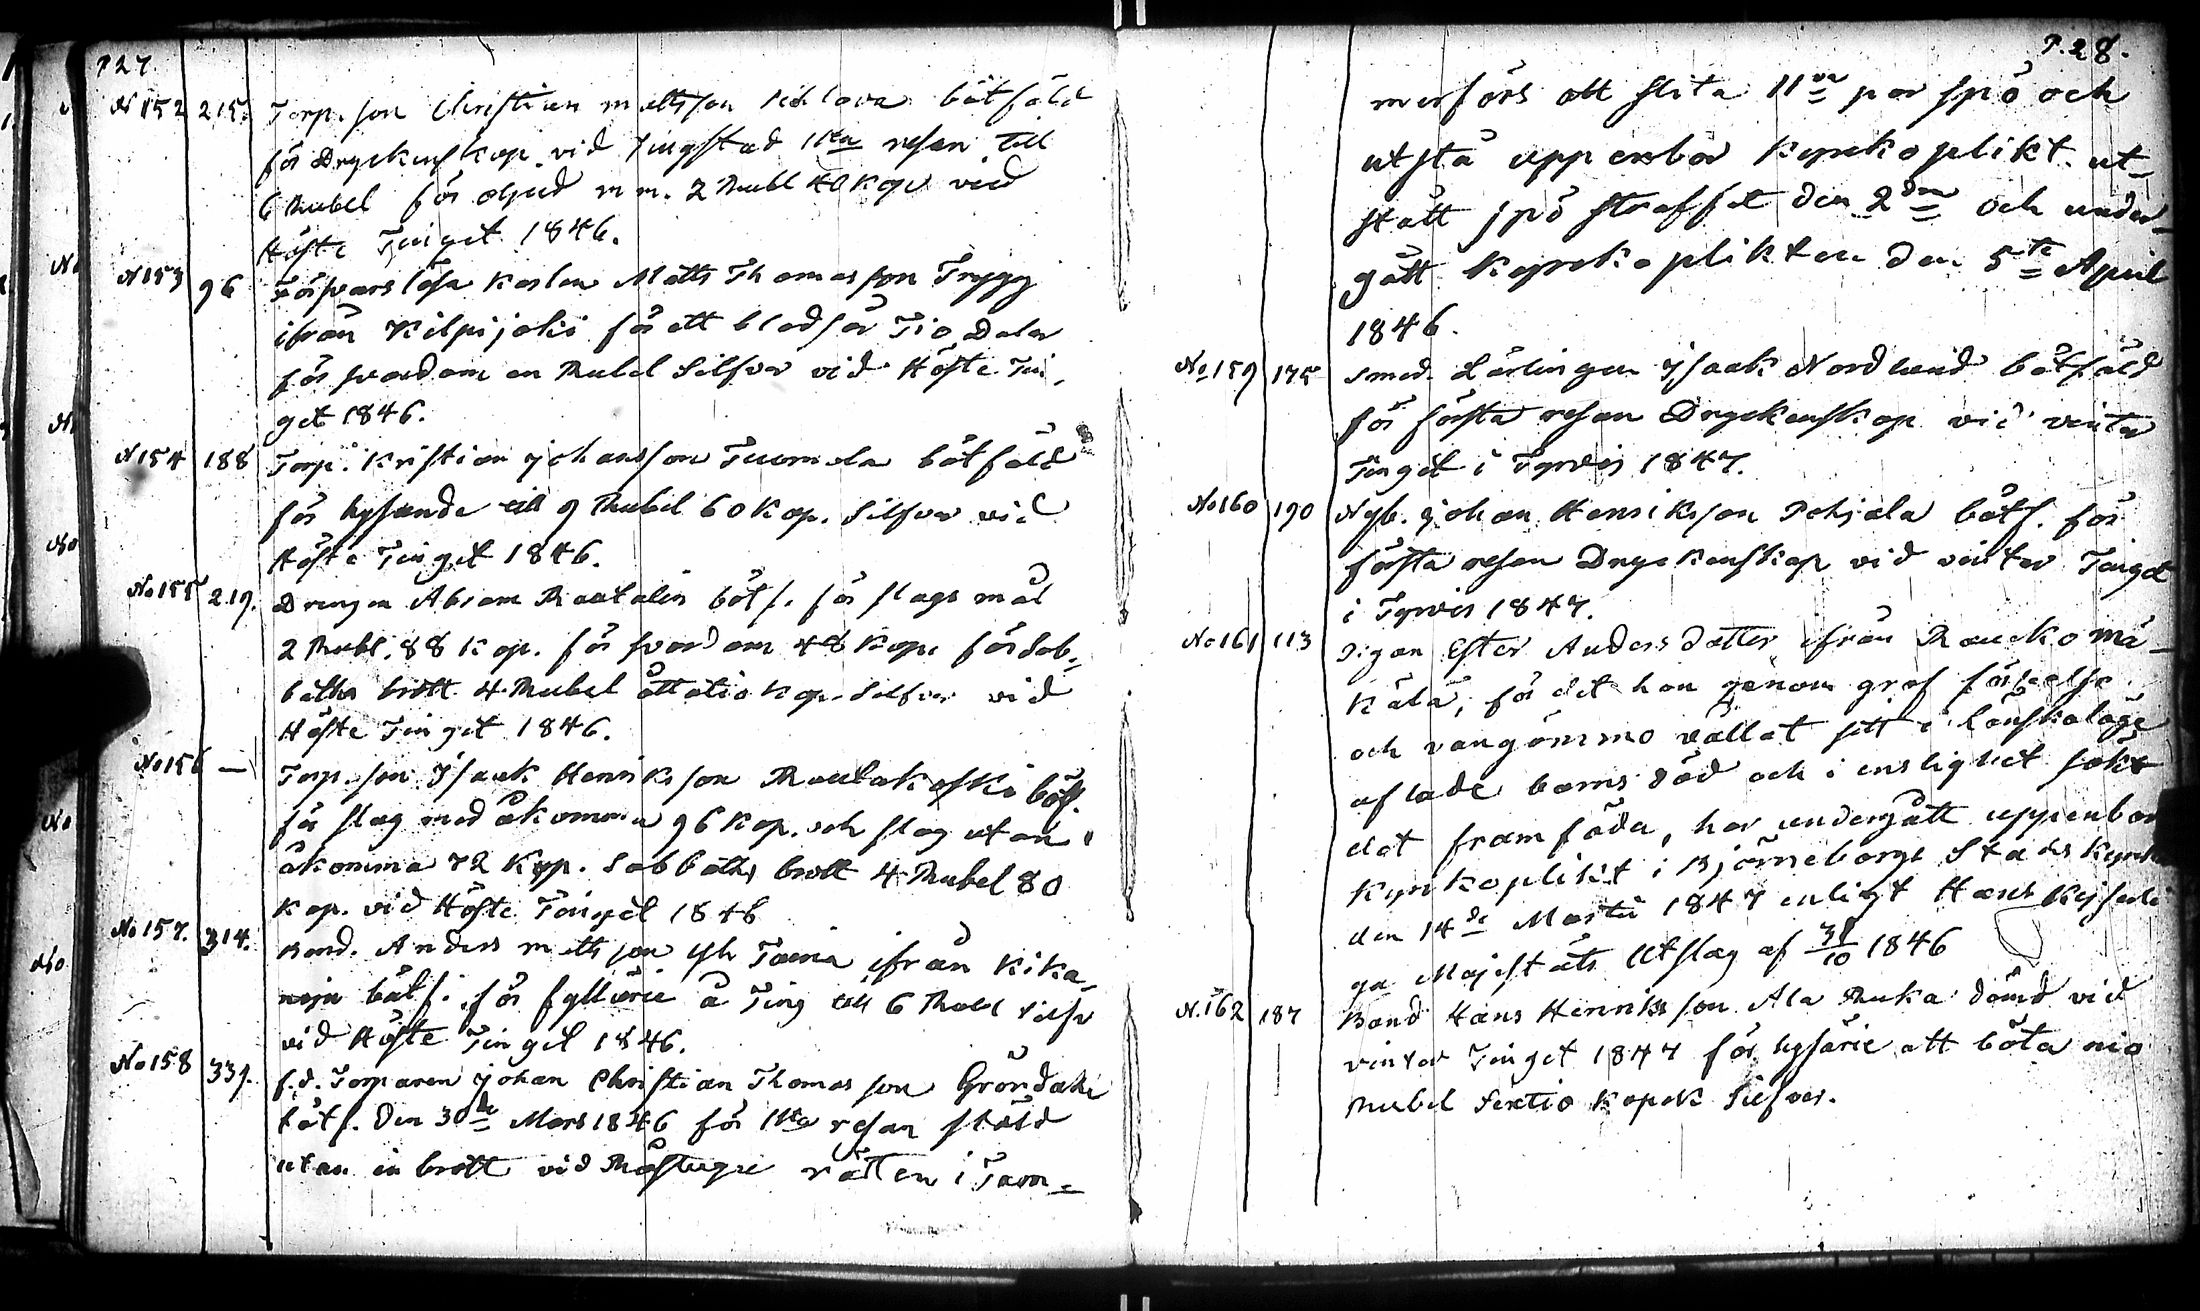 P 27.
N 152 215. Torp. son Christian mattsson bötfäld
för Dryckenskap vid Tingstad 1sta resan till
6 Rubel för oljud m m. 2 Rubl 40 kop vid
Höste Tinget 1846.
N 153 96 Försvarslösa karlen Matts Thomasson Trygg
ifrån Kilpijoki för ett blodsår Tio Daler
för svordom en Rubel Silfver vid Höste Tin-
get 1846.
N 154 188 Torp. Kristian johansson Tuomola bötfäld
för hysande till 9 Rubel 60 kop. Silfver vid
Höste Tinget 1846.
No 155 219. Drengen Abram Rautalin bötf. för slagsmål
2 Rubl. 88 kop. för svordom 48 kop. för Sab-
baths brott 4 Rubel åttatio kop. Silfver vid
Höste Tinget 1846.
No 156 — Torp. son Isaak Henriksson Rautakoski bötf.
för slag med åkomma 96 kop. och slag utan
åkomma 72 Kop. Sabbaths brott 4 Rubel 80
kop. vid Höste Tinget 1846
No 157. 314. Bond. Anders mattsson ifrån Kika-
noja bötf. för fylleri å Ting till 6 Rubl silfv
vid Höste Tinget 1846.
No 158 331. f.d. Torparen johan Christian Thomasson Gröndahl
bötf. Den 30de Mars 1846 för 1sta resan stöld
utan in brott vid Råstugu rätten i Tam-
P. 28.
merfors att slita 11va par spö och
utstå uppenbar kyrkoplikt. ut-
stått spö straffet den 2dra och under-
gått kyrkoplikten den 5te April
1846.
No 159 175 Smed. Lärlingen Isaak Nordlund bötfäld
för första resan Dryckenskap vid vinter
Tinget i Tyrvis 1847.
No 160 190 Nyb. johan Henriksson Pohjala bötf. för
första resan Dryckenskap vid vinter Tinget
i Tyrvis 1847.
No 161 113 Pigan Ester Anders dotter ifrån Rauko mä-
kälä, för det hon genom grof förseelse
och vangömmo vållat sitt i Lönskaläge
aflade barns död och i enslighet sökt
det framföda, har undergått uppenbar
kyrkoplikt i Björneborgs Stads kyrka
den 14de Martii 1847 enligt Hans Kejserli
ga Majestäts Utslag af 31/10 1846
N. 162 187 Bond Hans Henriksson Ala Ruka dömd vid
vinter Tinget 1847 för hysärie att böta nio
Rubel Sextio kopek Silfver.